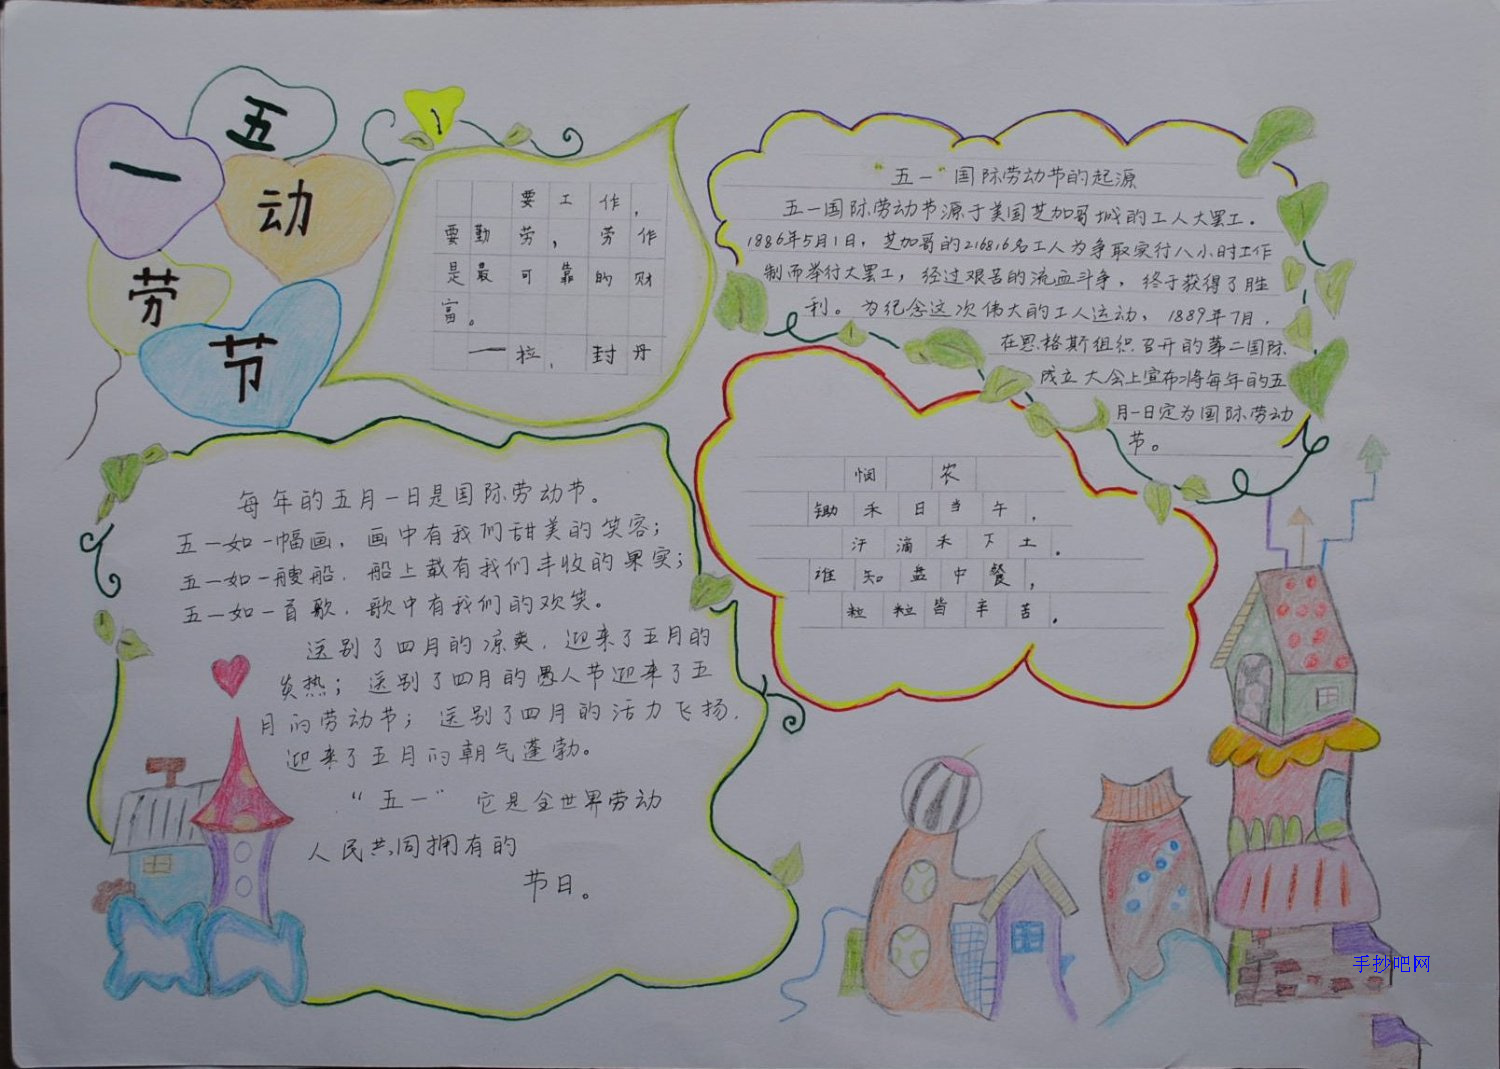 五
一
动
劳
节
要工作，
要勤劳，劳作
是最可靠的财
富。
——拉．封丹
“五一”国际劳动节的起源
五一国际劳动节源于美国芝加哥城的工人大罢工。
1886年5月1日，芝加哥的216816名工人为争取实行八小时工作
制而举行大罢工，经过艰苦的流血斗争，终于获得了胜
利。为纪念这次伟大的工人运动，1889年7月，
在恩格斯组织召开的第二国际
成立大会上宣布将每年的五
月一日定为国际劳动
节。
悯农
锄禾日当午，
汗滴禾下土。
谁知盘中餐，
粒粒皆辛苦。
每年的五月一日是国际劳动节。
五一如一幅画，画中有我们甜美的笑容；
五一如一艘船，船上载有我们丰收的果实；
五一如一首歌，歌中有我们的欢笑。
送别了四月的凉爽，迎来了五月的
炎热；送别了四月的愚人节迎来了五
月的劳动节；送别了四月的活力飞扬，
迎来了五月的朝气蓬勃。
“五一”它是全世界劳动
人民共同拥有的
节日。
手抄吧网